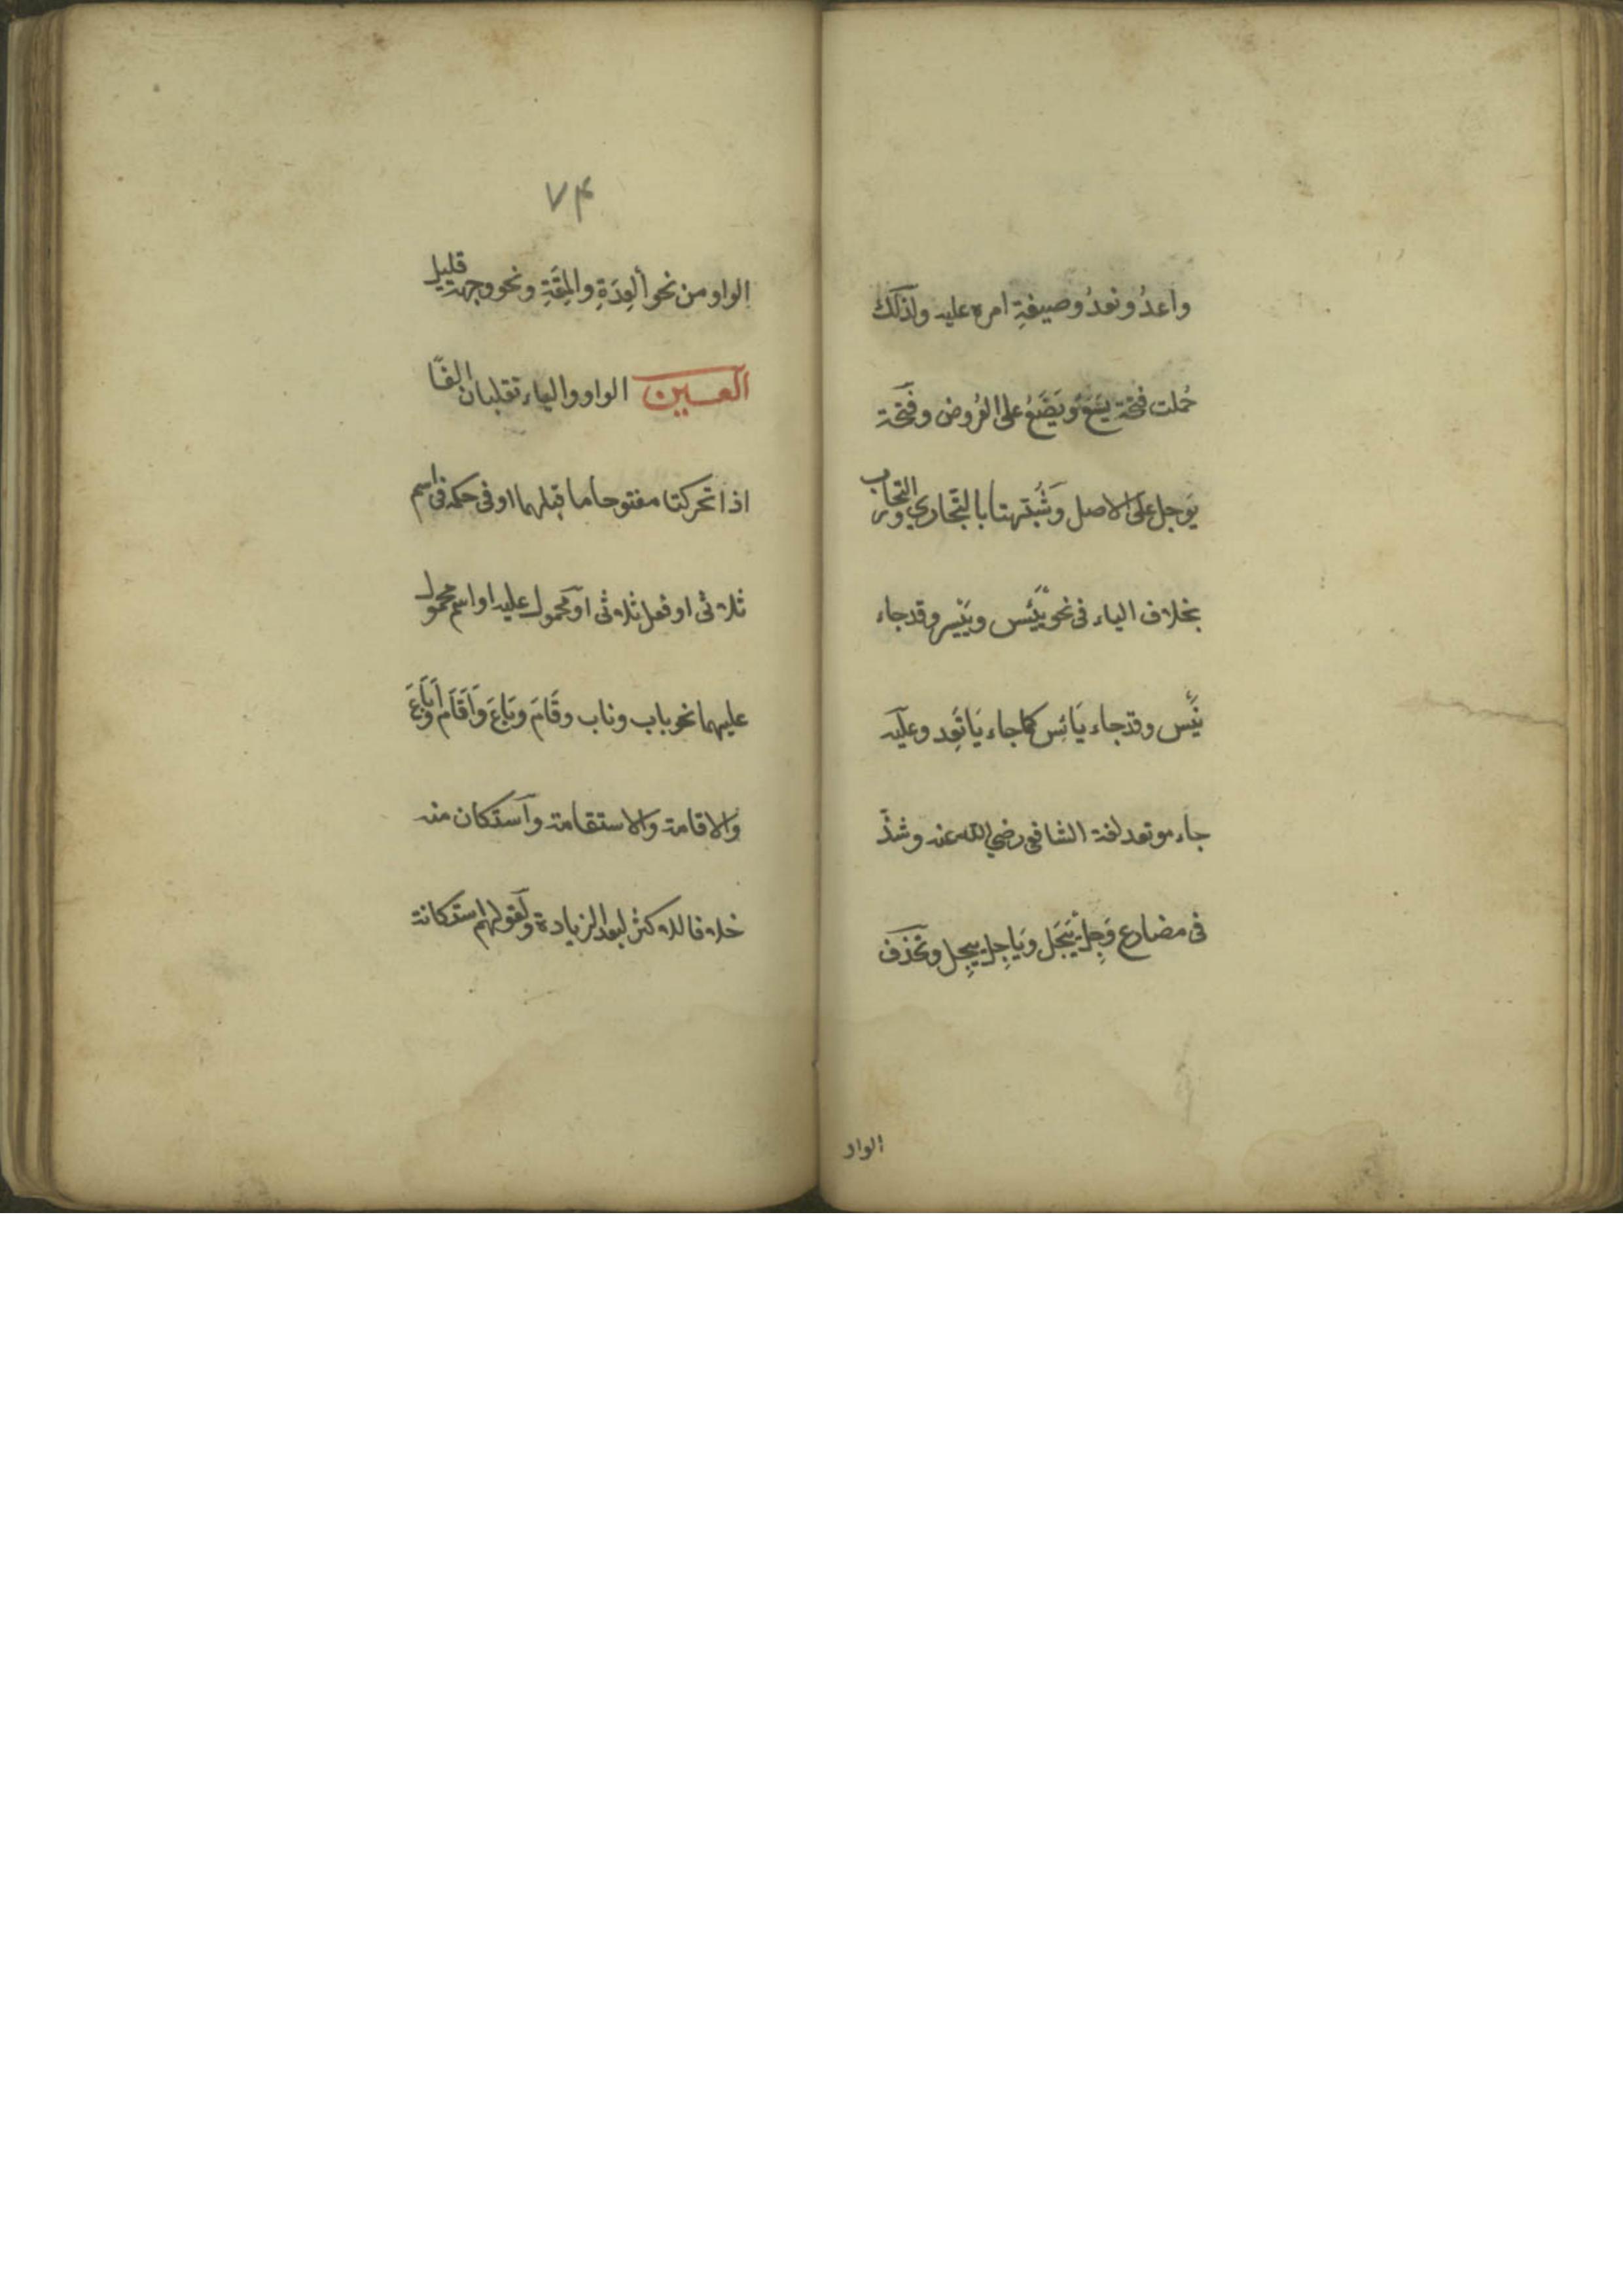 واعدُ ونعدُ وصيغةِ امره عليه ولذلك
حُملت فتحة يسَعُ ويَضَعُ على العُروض وفتحة
يَوجل على الاصل وشُبّهتا بالتّجاري والتجارب
بخلاف الياء فى نحو يَيْئِس ويَيْسِر وقد جاء
يَئِس وقد جاء يَائِس كما جاء يَاتَعِد وعليه
جاء موتعد لغة الشافعى رضي الله عنه وشذّ
فى مضارع وَجِل يَيْجَل ويَاجل ييجل وتُحْذَف
الواو
٧۴
الواو من نحو ألعِدَةِ والمِقَةِ ونحو وجهة قليل
العين الواو والياء تقلبان الفًا
اذا تحركتا مفتوحا ما قبلهما او فى حكمه فى اسم
ثلاثى او فعل ثلاثى او محمول عليه او اسم محمول
عليهما نحو باب وناب وقَامَ وبَاعَ وأَقَامَ وأَبَاعَ
والاقامة والاستقامة واستكان منه
خلافا للاكثر لبعد الزيادة ولقولهم استكانة